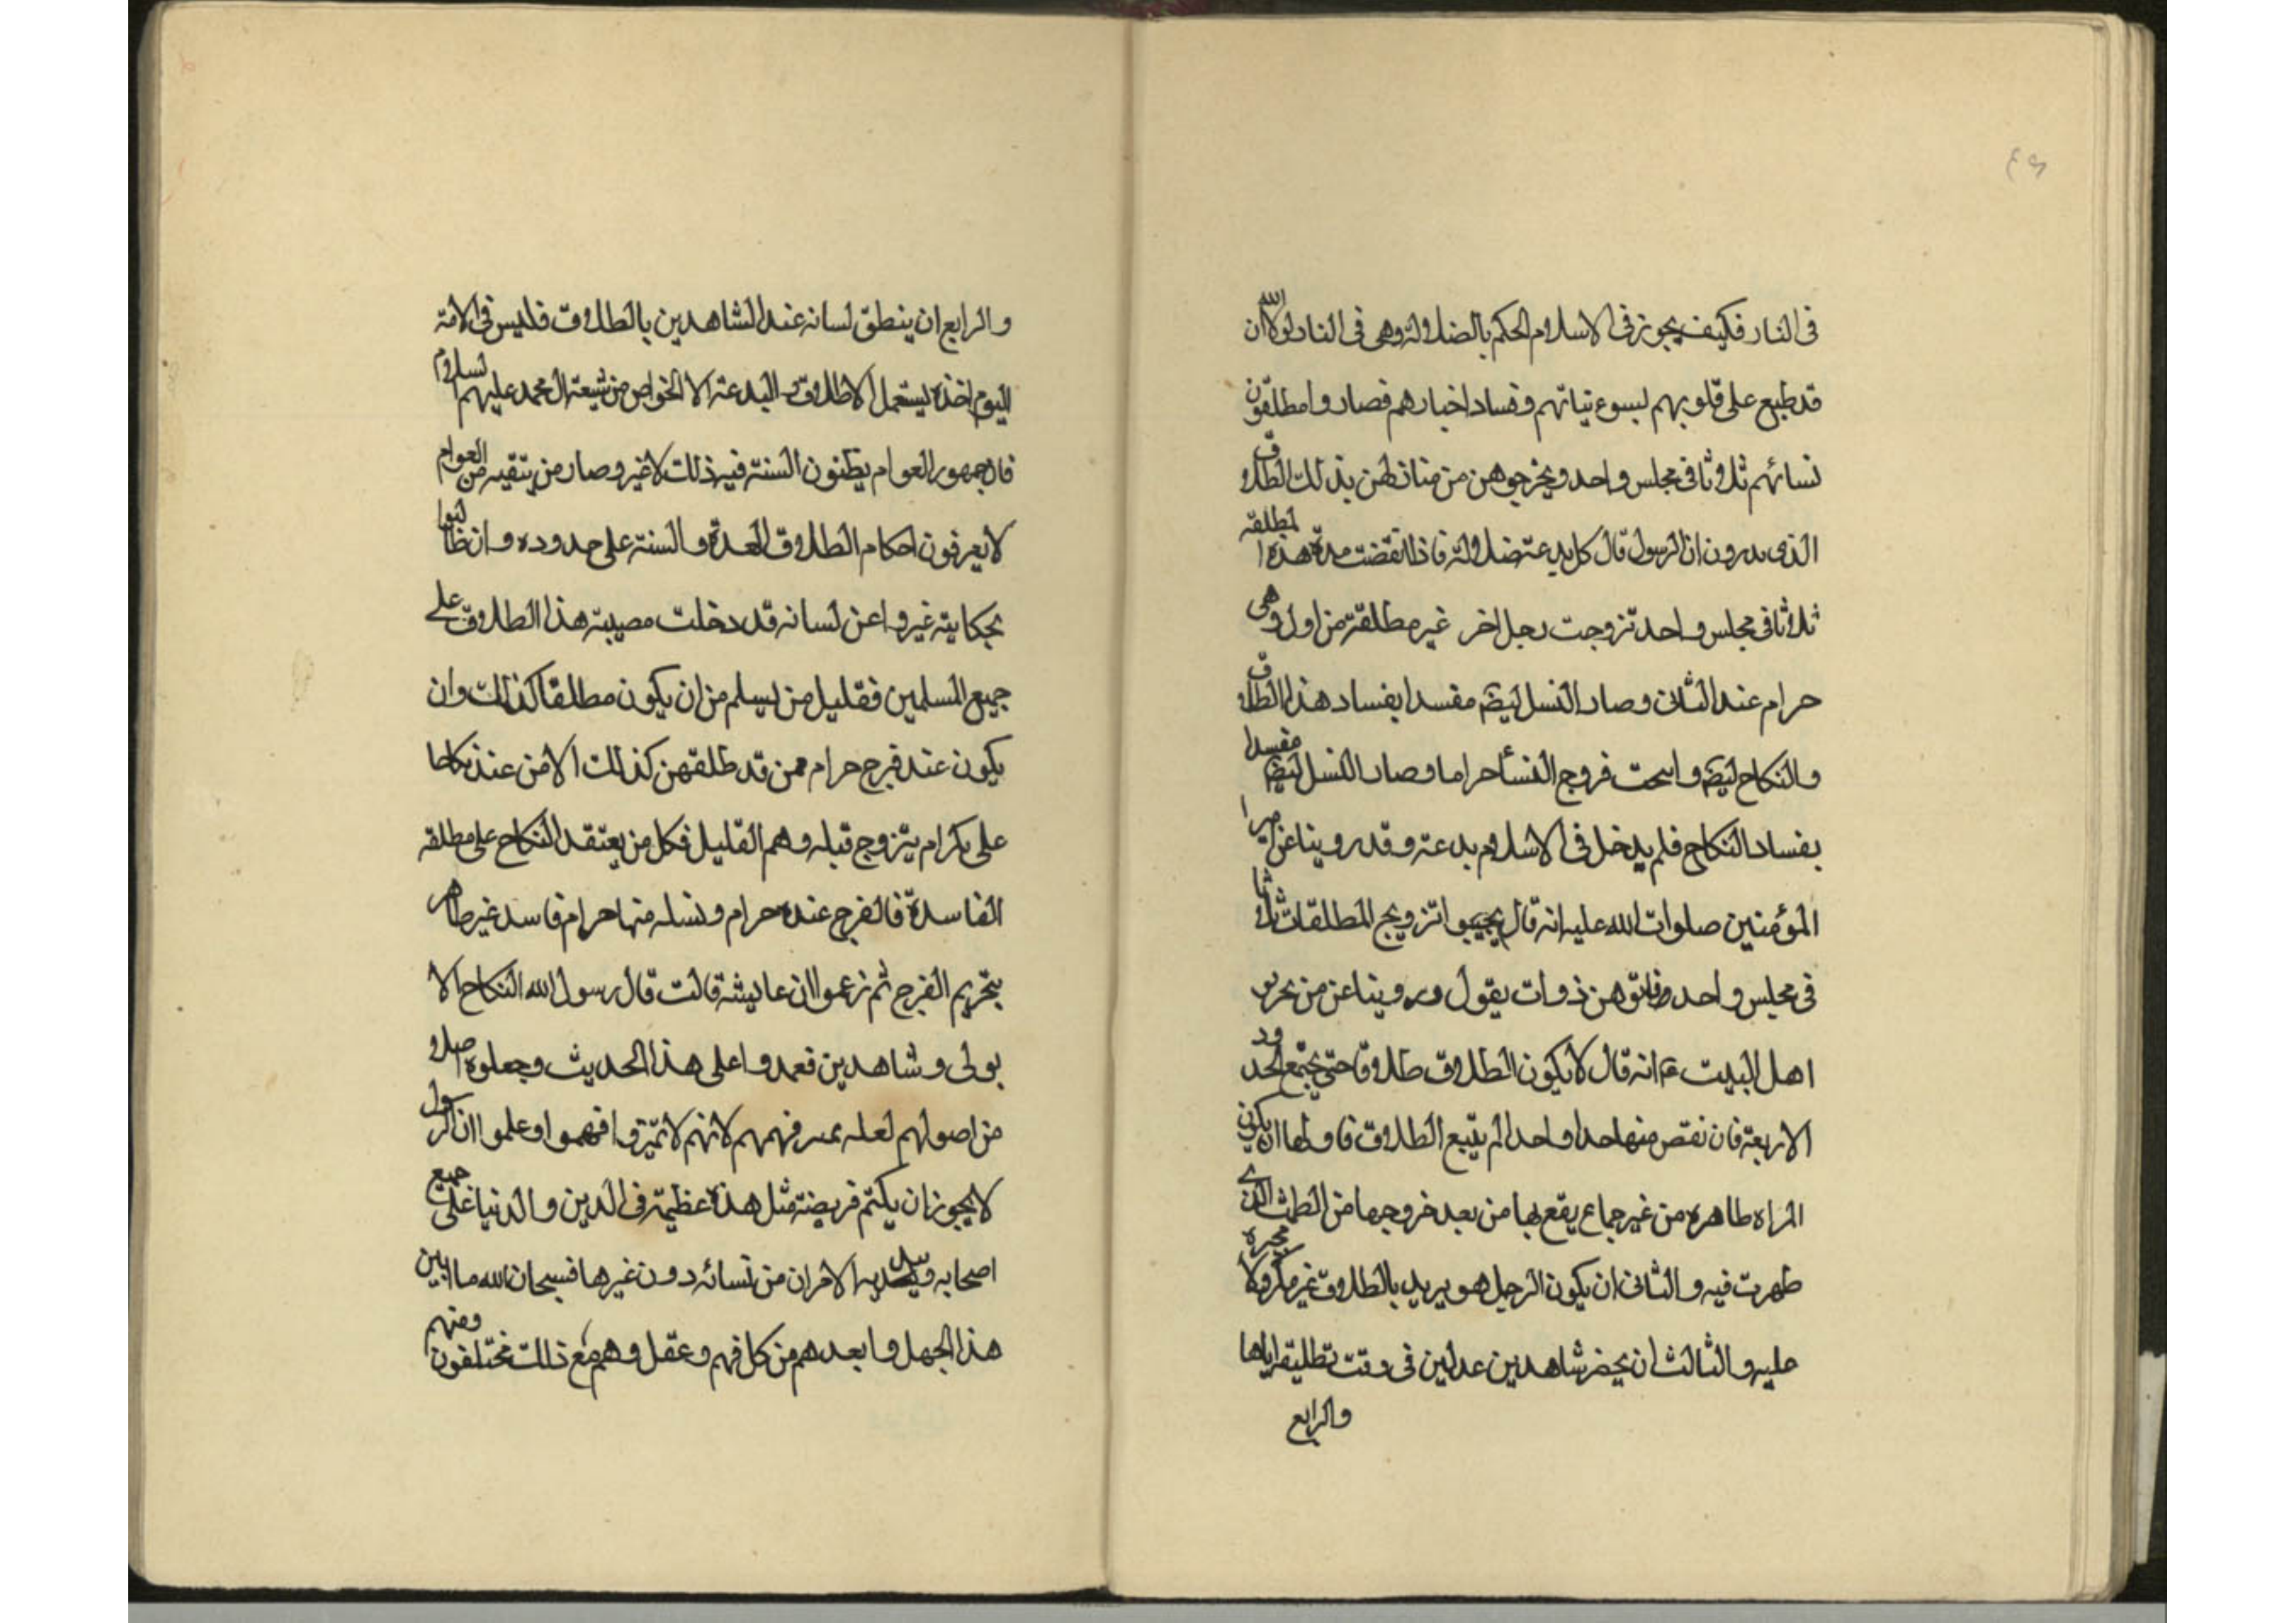 ٤٩
فى النار فكيف يجوز فى الاسلام الحكم بالضلالة وهى فى النار لولا ان الله
قد طبع على قلوبهم لسوء نياتهم وفساد اخبارهم فصاروا مطلقون
نسائهم ثلاثا فى مجلس واحد ويخرجوهن من منازلهن بذلك الطلاق
الذى يدرون ان الرسول قال كل بدعة ضلالة فاذا انقضت مدة هذه المطلقه
ثلاثا فى مجلس واحد تزوجت رجل اخر غير مطلقة من اول وهى
حرام عند الثانى وصار النسل ايضا مفسدا بفساد هذا الطلاق
والنكاح ايضا واسحت فروج النسأ حراما وصار النسل ايضا مفسدا
بفساد النكاح فلم يدخل فى الاسلام بدعة وقد روينا عن اميرا
المؤمنين صلوات الله عليه انه قال تجنبوا تزويج المطلقات ثلاثا
فى مجلس واحد فانهن ذوات بقول وروينا عن من
اهل البيت ع انه قال لا يكون الطلاق طلاقا حتى يجتمع الحدود
الاربعة فان نقص منها حدا واحدا لم يتبع الطلاق فاولها ان يكون
المراه طاهره من غير جماع يقع بها من بعد خروجها من الطمث الذى
طهرت فيه والثانى ان يكون الرجل هو يريد بالطلاق غير مكروه ولا مجبره
عليه والثالث ان يحضر شاهدين عدلين فى وقت تطليقه اياها
والرابع
والرابع ان ينطق لسانه عند الشاهدين بالطلاق فليس فى الامة
اليوم اخذه يستعمل الاطلاق البدعة الا الخواص من شيعة ال محمد عليهم السلام
فان جمهور العوام يظنون السنة فيه ذلك لاغير وصار من يتقيه من العوام
لا يعرفون احكام الطلاق العدة والسنة على حدوده وان طالبوا
بحكايته غيروا عن لسانه قد دخلت مصيبة هذا الطلاق على
جميع المسلمين فقليل من يسلم من ان يكون مطلقا كذلك وان
يكون عنده فرج حرام ممن قد طلقهن كذلك الا من عنده نكاحا
على بكر ام يتزوج قبله وهم القليل فكل من يعتقد النكاح على مطلقه
الفاسدة فالفرج عنده حرام ونسله منها حرام فاسد غير طاهر
بتحريم الفرج ثم زعموا ان عايشة قالت قال رسول الله النكاح الا
بولى وشاهدين فعمدوا على هذا الحديث وجعلوه اصلا
من اصولهم لعله فهمهم لانهم لا تميزوا فهموا وعلموا ان الرسول
لا يجوز ان يكتم فريضة مثل هذه عظيمة فى الدين والدنيا على جميع
اصحابه ويسل الامران من نسائه دون غيرها فسبحان الله ما ابين
هذا الجهل وابعدهم من كل فهم وعقل وهم مع ذلك مختلفون ومنهم